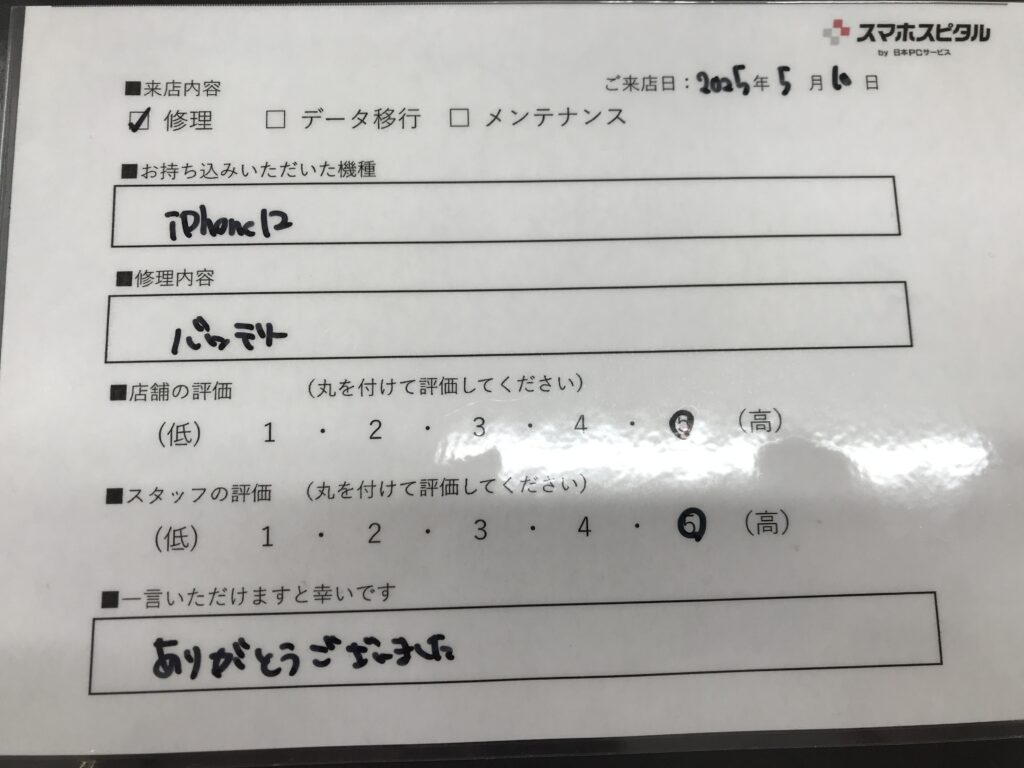 スマホスピタル
by 日本PCサービス
ご来店日：2025年5月10日
■来店内容
☑ 修理 □ データ移行 □ メンテナンス
■お持ち込みいただいた機種
iPhone12
■修理内容
バッテリー
■店舗の評価 （丸を付けて評価してください）
（低） 1 ・ 2 ・ 3 ・ 4 ・ 5 （高）
■スタッフの評価 （丸を付けて評価してください）
（低） 1 ・ 2 ・ 3 ・ 4 ・ 5 （高）
■一言いただけますと幸いです
ありがとうございました